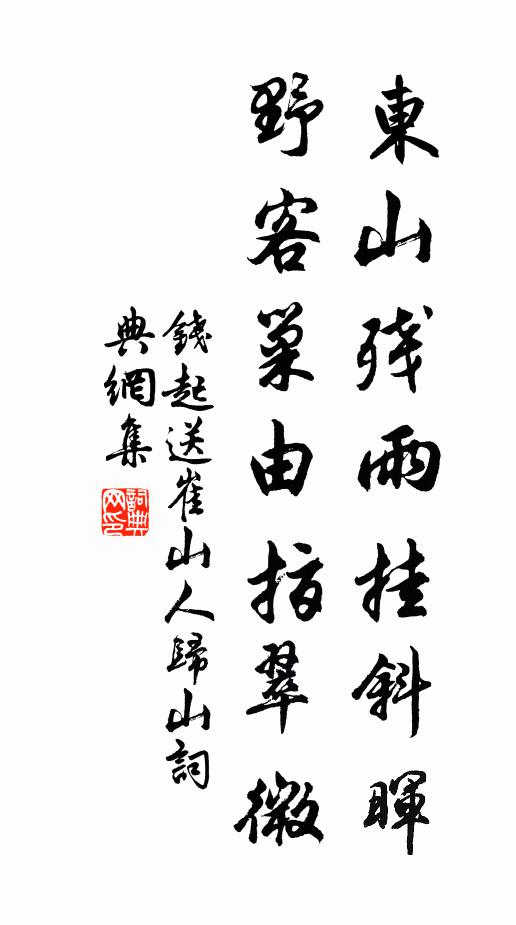 東山残雨挂斜暉
野客巢由指翠微
錢起送崔山人歸山詞
典網集
詞典網印